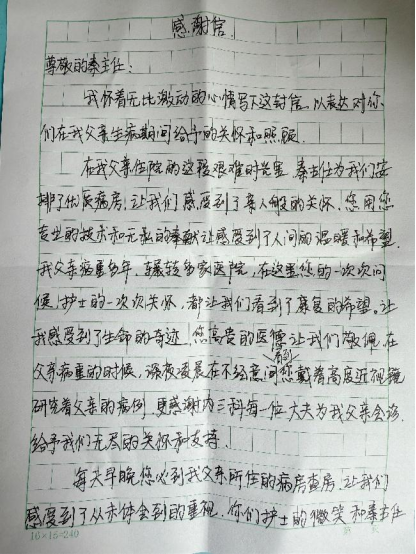 感谢信
尊敬的秦主任：
我怀着无比激动的心情写下这封信，以表达对你
们在我父亲生病期间给予的关怀和照顾。
在我父亲住院的这段艰难时光里，秦主任为我们安
排了优质病房，让我们感受到了亲人般的关怀，您用您
专业的技术和无私的奉献让感受到了人间的温暖和希望。
我父亲病重多年，辗转多家医院，在这里您的一次次问
候，护士的一次次关怀，都让我们看到了康复的希望。让
我感受到了生命的奇迹，您高贵的医德让我们敬佩，在
父亲病重的时候，深夜凌晨在不经意间看到您戴着高度近视镜
研究着父亲的病例，更感谢内三科每一位大夫为我父亲会诊
给予我们无尽的关怀和支持。
每天早晚您必到我父亲所住的病房查房，让我们
感受到了从未体会到的重视，你们护士的微笑和秦主任
16×15=240